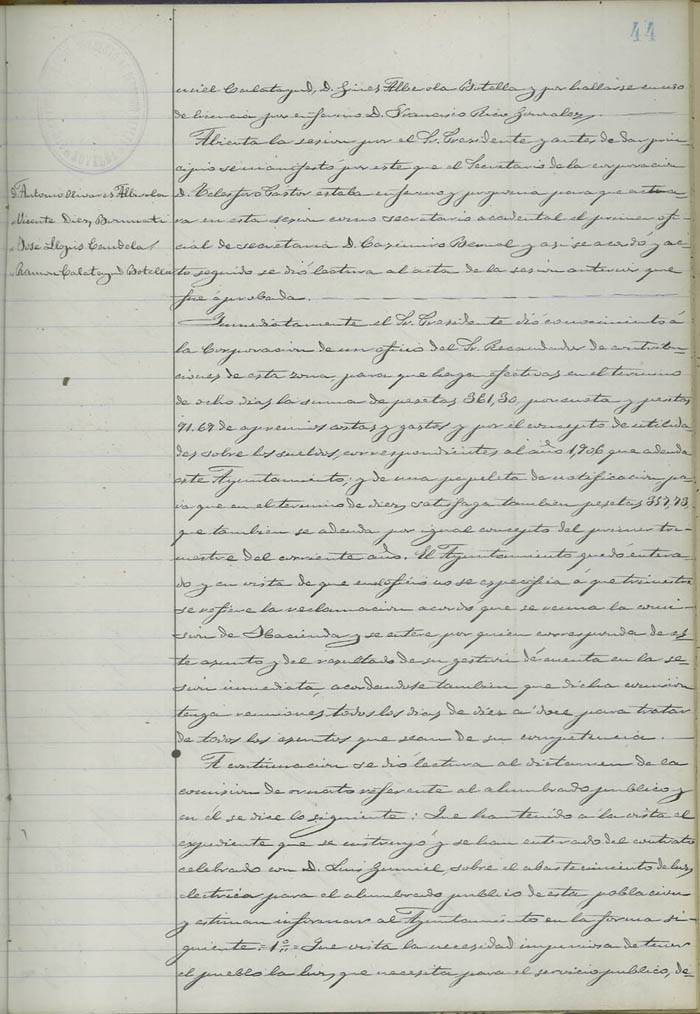 44
muel Calatayud, D. Gines Alberola Botella y por hallarse en uso
de licencia por enfermo D. Francisco Rico Gonzalez
Abierta la sesion por el Sr. Presidente y antes de dar prin
cipio se manifestó por este que el Secretario de la corporacion
D. Telesforo Pastor estaba enfermo y proponia para que actua
ra en esta sesion como secretario accidental el primer ofi
cial de secretaria D. Casimiro Bernal y asi se acordó y ac
to seguido se dió lectura al acta de la sesion anterior que
fué aprobada.
D. Antonio Olivares Alberola
" Vicente Diez
" José Llopis Candela
" Ramon Calatayud Botella
Inmediatamente el Sr. Presidente dió conocimiento á
la Corporacion de un oficio del Sr. Recaudador de contribu
ciones de esta zona, para que haga efectivas en el termino
de ocho dias la suma de pesetas 361,30, por cuota y pesetas
91.69 de apremios costas y gastos y por el concepto de utilida
des sobre los sueldos, correspondientes al año 1,906 que adeuda
este Ayuntamiento; y de una papeleta de notificacion pa
ra que en el termino de diez, satisfaga tambien pesetas 357,73
que tambien se adeuda por igual concepto del primer tri
mestre del corriente año. El Ayuntamiento quedó entera
do y en vista de que en el oficio no se especifica á que trimestre
se refiere la reclamacion acordó que se reuna la comi
sion de Hacienda y se entere por quien corresponda de es
te asunto y del resultado de su gestion dé cuenta en la se
sion inmediata, acordandose tambien que dicha comision
tenga reuniones todos los dias de diez a doce para tratar
de todos los asuntos que sean de su competencia.
A continuacion se dió lectura al dictamen de la
comision de ornato referente al alumbrado publico y
en él se dice lo siguiente: Que han tenido a la vista el
expediente que se instruyó y se han enterado del contrato
celebrado con D. Luis sobre el abastecimiento de luz
electrica para el alumbrado publico de esta poblacion
y estiman informar al Ayuntamiento en la forma si-
guiente = 1º = Que vista la necesidad imperiosa de tener
el pueblo la luz, que necesita para el servicio publico, de-